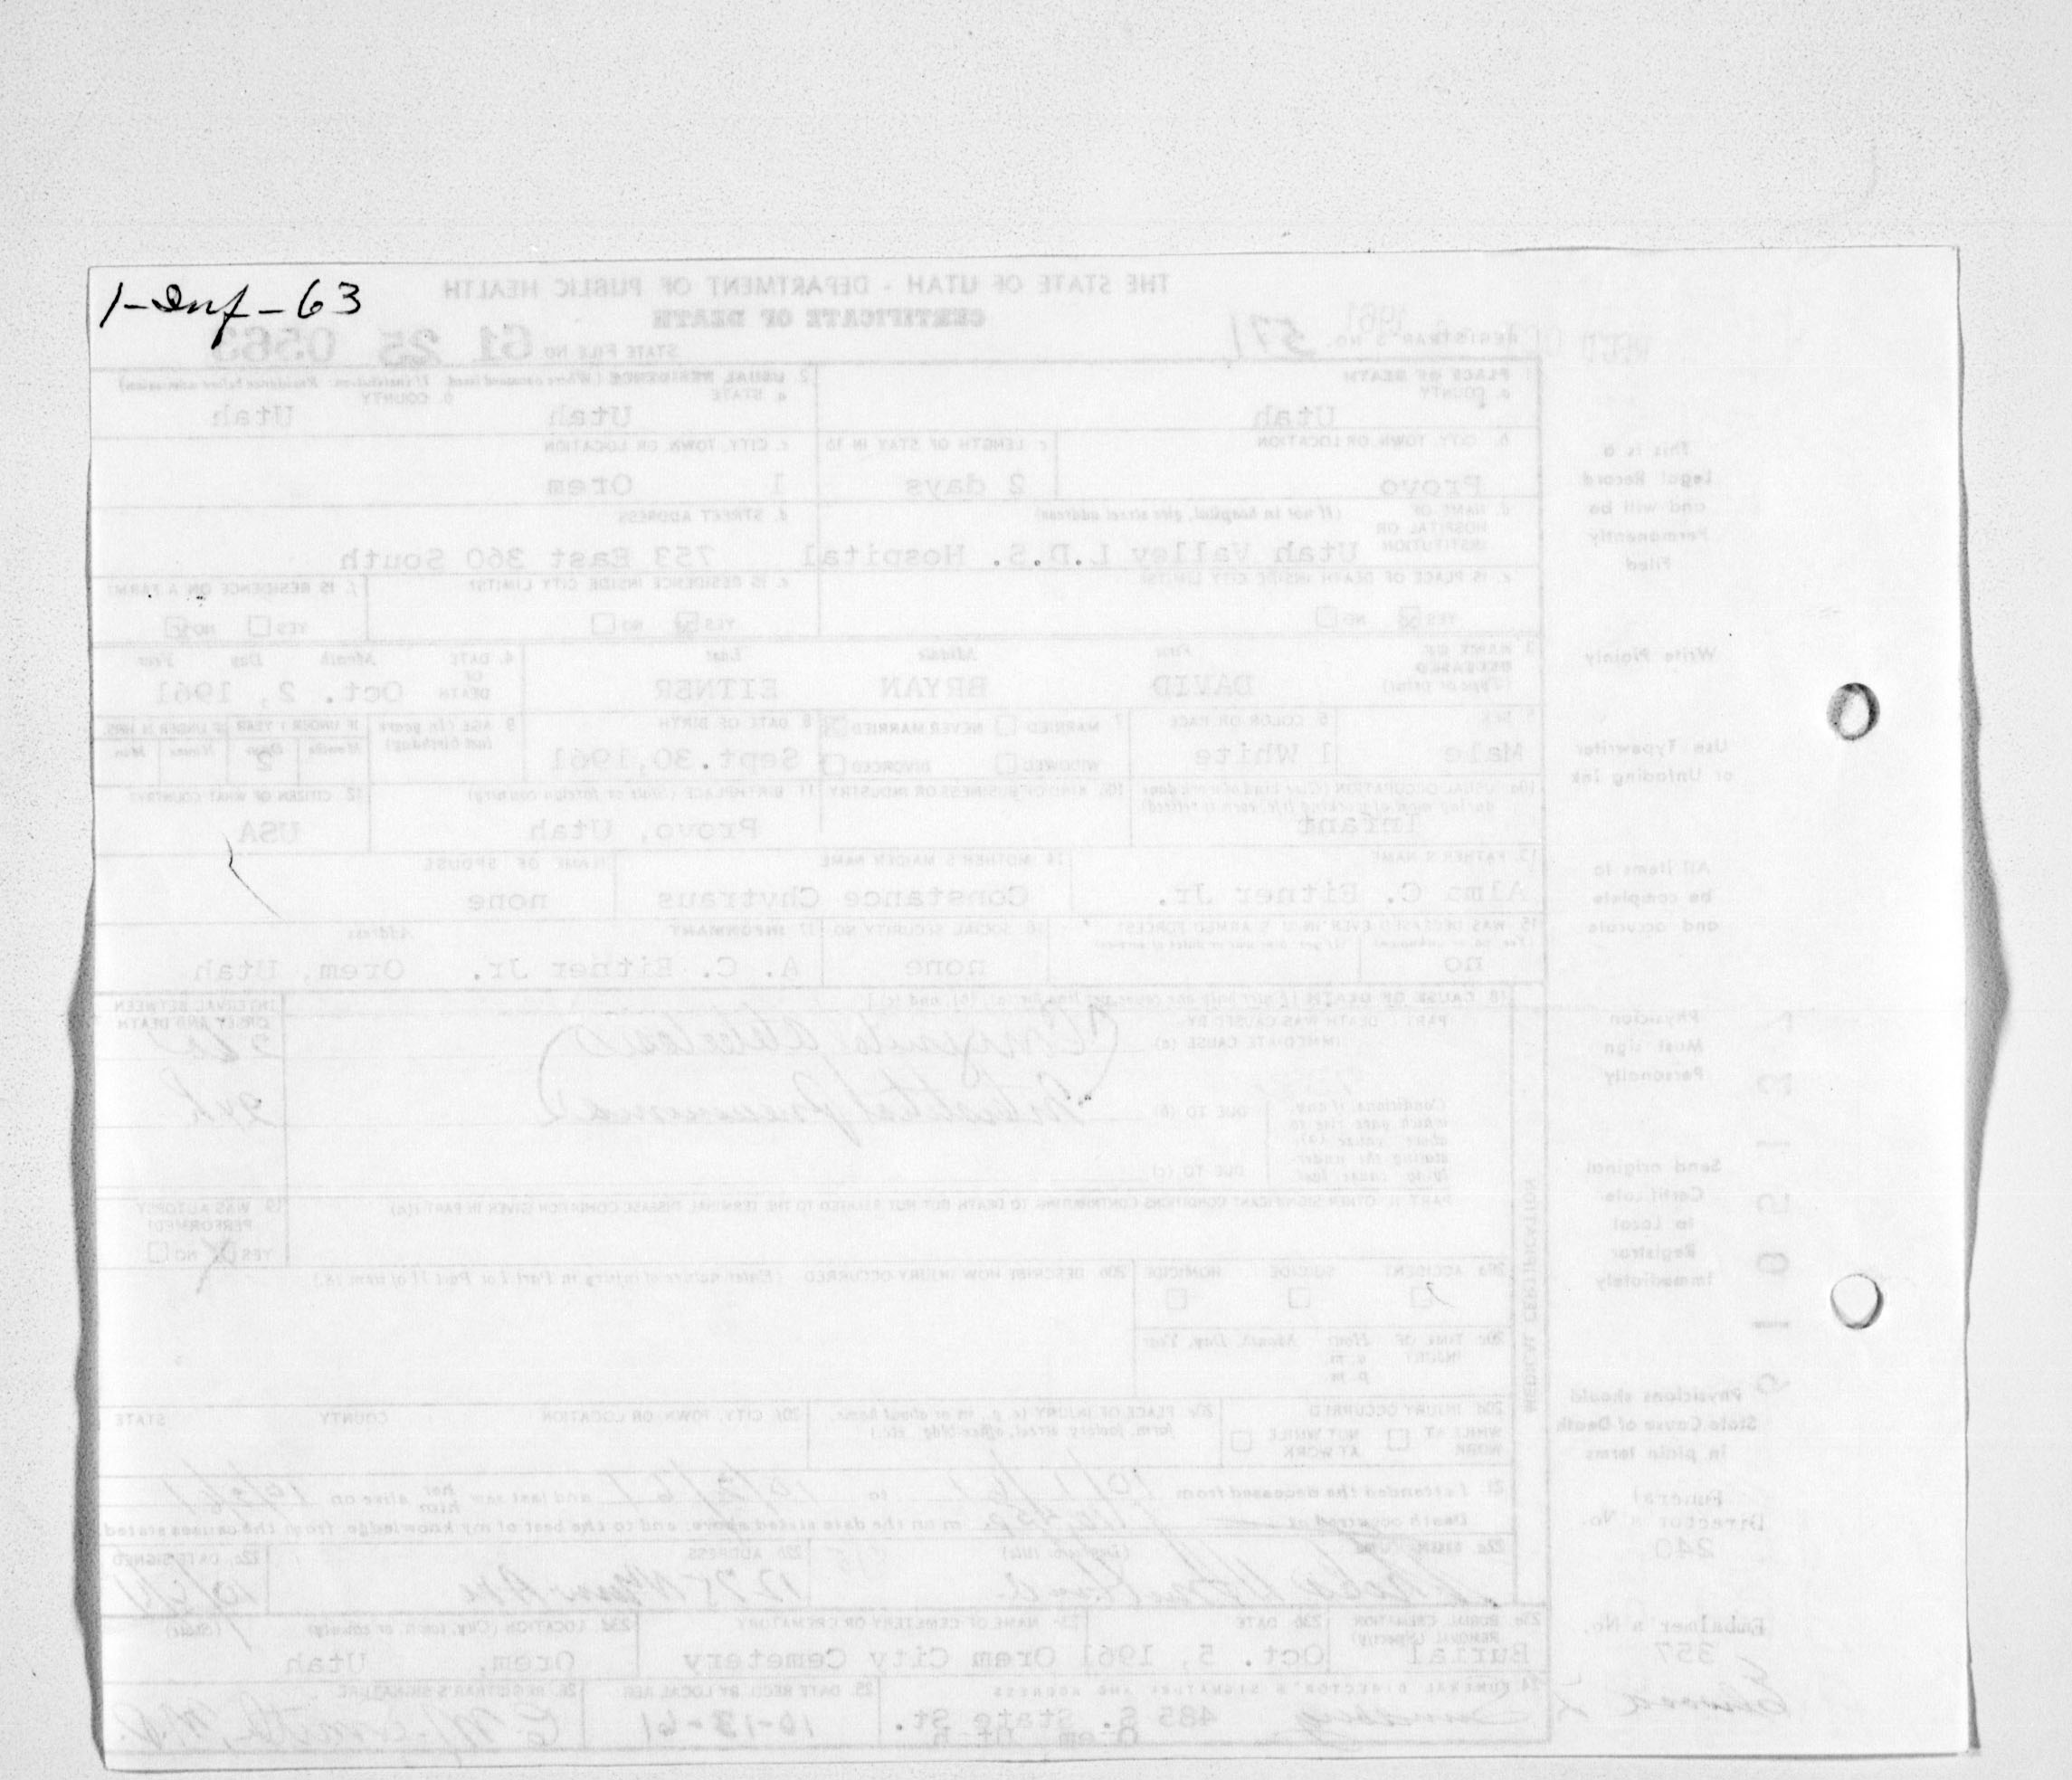 1-Inf-63
THE STATE OF UTAH - DEPARTMENT OF PUBLIC HEALTH
CERTIFICATE OF DEATH
REGISTRAR'S NO. 571
STATE FILE NO 61 25 0563
1. PLACE OF DEATH
a. COUNTY
Utah
2. USUAL RESIDENCE (Where deceased lived. If institution: Residence before admission)
a. STATE
Utah
b. COUNTY
Utah
b. CITY, TOWN OR LOCATION
Provo
c LENGTH OF STAY IN 1b
2 days
c. CITY, TOWN, OR LOCATION
1 Orem
d. NAME OF HOSPITAL OR INSTITUTION (If not in hospital, give street address)
Utah Valley L.D.S. Hospital
d. STREET ADDRESS
753 East 360 South
e. IS PLACE OF DEATH INSIDE CITY LIMITS?
YES NO
e. IS RESIDENCE INSIDE CITY LIMITS?
YES NO
f. IS RESIDENCE ON A FARM?
YES NO
3 NAME OF DECEASED (Type or print)
First Middle Last
DAVID BRYAN EITNER
4. DATE OF DEATH Month Day Year
Oct. 2, 1961
5 SEX
Male
6 COLOR OR RACE
1 White
7 MARRIED NEVER MARRIED
WIDOWED DIVORCED
8 DATE OF BIRTH
Sept.30,1961
9 AGE (In years last birthday)
IF UNDER 1 YEAR IF UNDER 24 HRS.
Months Days Hours Min
2
10a USUAL OCCUPATION (Give kind of work done during most of working life, even if retired)
Infant
10b KIND OF BUSINESS OR INDUSTRY
11 BIRTHPLACE (State or foreign country)
Provo, Utah
12 CITIZEN OF WHAT COUNTRY?
USA
13. FATHER'S NAME
Alma C. Eitner Jr.
14 MOTHER'S MAIDEN NAME
Constance Chytraus
NAME OF SPOUSE
none
15 WAS DECEASED EVER IN U. S. ARMED FORCES?
no
16 SOCIAL SECURITY NO
none
17 INFORMANT Address
A. C. Eitner Jr. Orem, Utah
18 CAUSE OF DEATH
PART I DEATH WAS CAUSED BY
IMMEDIATE CAUSE (a)
Congenital Atelectasis
INTERVAL BETWEEN ONSET AND DEATH
DUE TO (b)
Interstitial pneumonia
DUE TO (c)
PART II OTHER SIGNIFICANT CONDITIONS CONTRIBUTING TO DEATH BUT NOT RELATED TO THE TERMINAL DISEASE CONDITION GIVEN IN PART I(a)
19 WAS AUTOPSY PERFORMED?
YES NO
20a ACCIDENT SUICIDE HOMICIDE
20b DESCRIBE HOW INJURY OCCURRED (Enter nature of injury in Part I or Part II of item 18.)
20c TIME OF INJURY Hour Month, Day, Year
a m
p. m
20d INJURY OCCURRED
WHILE AT WORK NOT WHILE AT WORK
20e PLACE OF INJURY (e. g., in or about home, farm, factory, street, office bldg., etc.)
20f CITY, TOWN OR LOCATION COUNTY STATE
MEDICAL CERTIFICATION
21. I attended the deceased from to and last saw her him alive on
Death occurred at m on the date stated above, and to the best of my knowledge, from the causes stated
22b ADDRESS
22c. DATE SIGNED
23a BURIAL CREMATION REMOVAL (Specify)
Burial
23b DATE
Oct. 5, 1961
23c NAME OF CEMETERY OR CREMATORY
Orem City Cemetery
23d. LOCATION (City, town, or county) (State)
Orem, Utah
24 FUNERAL DIRECTOR'S SIGNATURE AND ADDRESS
485 S. State St.
Orem Utah
25 DATE RECD BY LOCAL REG
26. REGISTRAR'S SIGNATURE
This is a
Legal Record
and will be
Permanently
Filed
Write Plainly
Use Typewriter
or Unfading Ink
All items to
be complete
and accurate
Physician
Must sign
Personally
Send original
Certificate
to Local
Registrar
Immediately
Physicians should
State Cause of Death
in plain terms
Funeral
Director's No.
240
Embalmer's No.
357